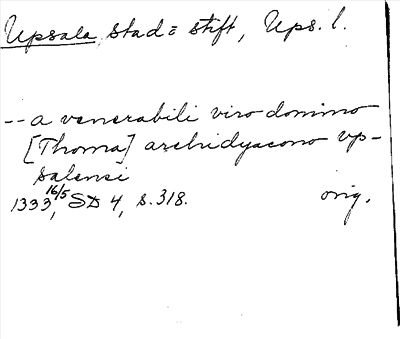 Upsala, stad = stift, Ups. l.
-- a venerabili viro domino
[Thoma] archidyacono vp-
salensi
1333, 16/5 SD 4, s. 318. orig.